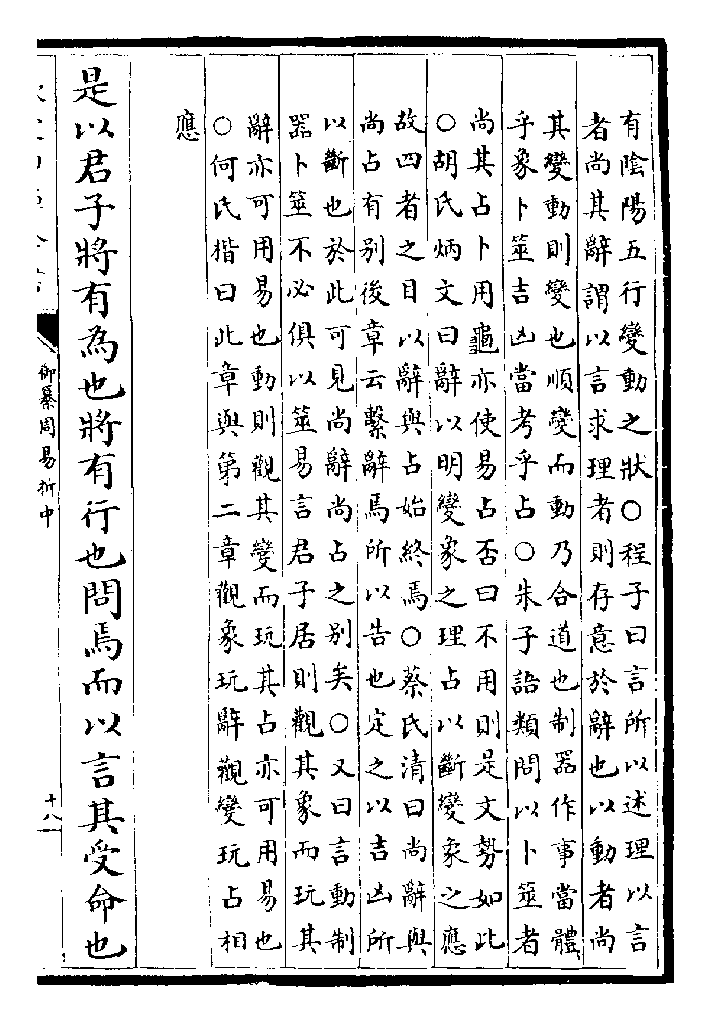 有陰陽五行變動之狀○程子曰言所以述理以言
者尚其辭謂以言求理者則存意於辭也以動者尚
其變動則變也順變而動乃合道也制器作事當體
乎象卜筮吉凶當考乎占○朱子語類問以卜筮者
尚其占卜用龜亦使易占否曰不用則是文勢如此
○胡氏炳文曰辭以明變象之理占以斷變象之應
故四者之目以辭與占始終焉○蔡氏清曰尚辭與
尚占有别後章云繫辭焉所以告也定之以吉凶所
以斷也於此可見尚辭尚占之别矣○又曰言動制
器卜筮不必俱以筮易言君子居則觀其象而玩其
辭亦可用易也動則觀其變而玩其占亦可用易也
○何氏楷曰此章與第二章觀象玩辭觀變玩占相
應
是以君子將有為也將有行也問焉而以言其受命也
御纂周易折中
十八